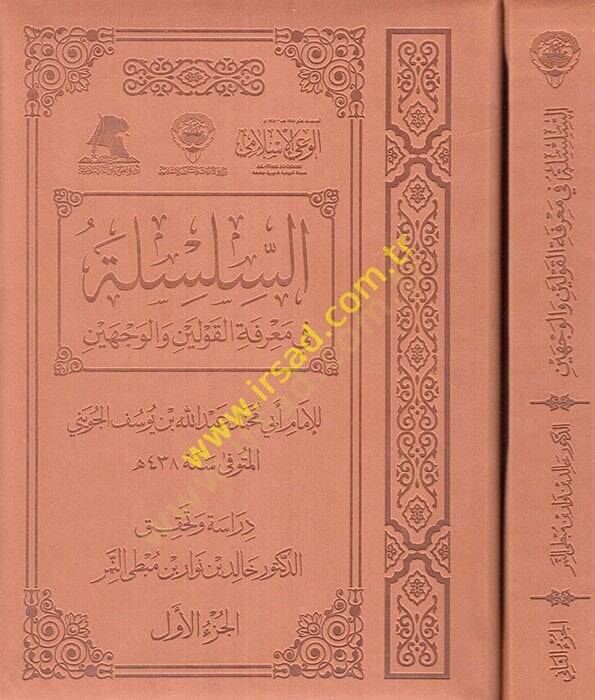 الوعي الإسلامي
السِّلسِلَةُ
في مَعْرِفَةِ القَوْلَيْنِ وَالوَجْهَيْنِ
للإمام أبي محمد عبد الله بن يوسف الجويني
المتوفى سنة ٤٣٨هـ
دراسة وتحقيق
الدكتور خالد بن نوار بن مبطي النمر
الجزء الأول
السلسلة في معرفة القولين والوجهين
الدكتور خالد بن نوار بن مبطي النمر
الجزء الثاني
www.irsad.com.tr